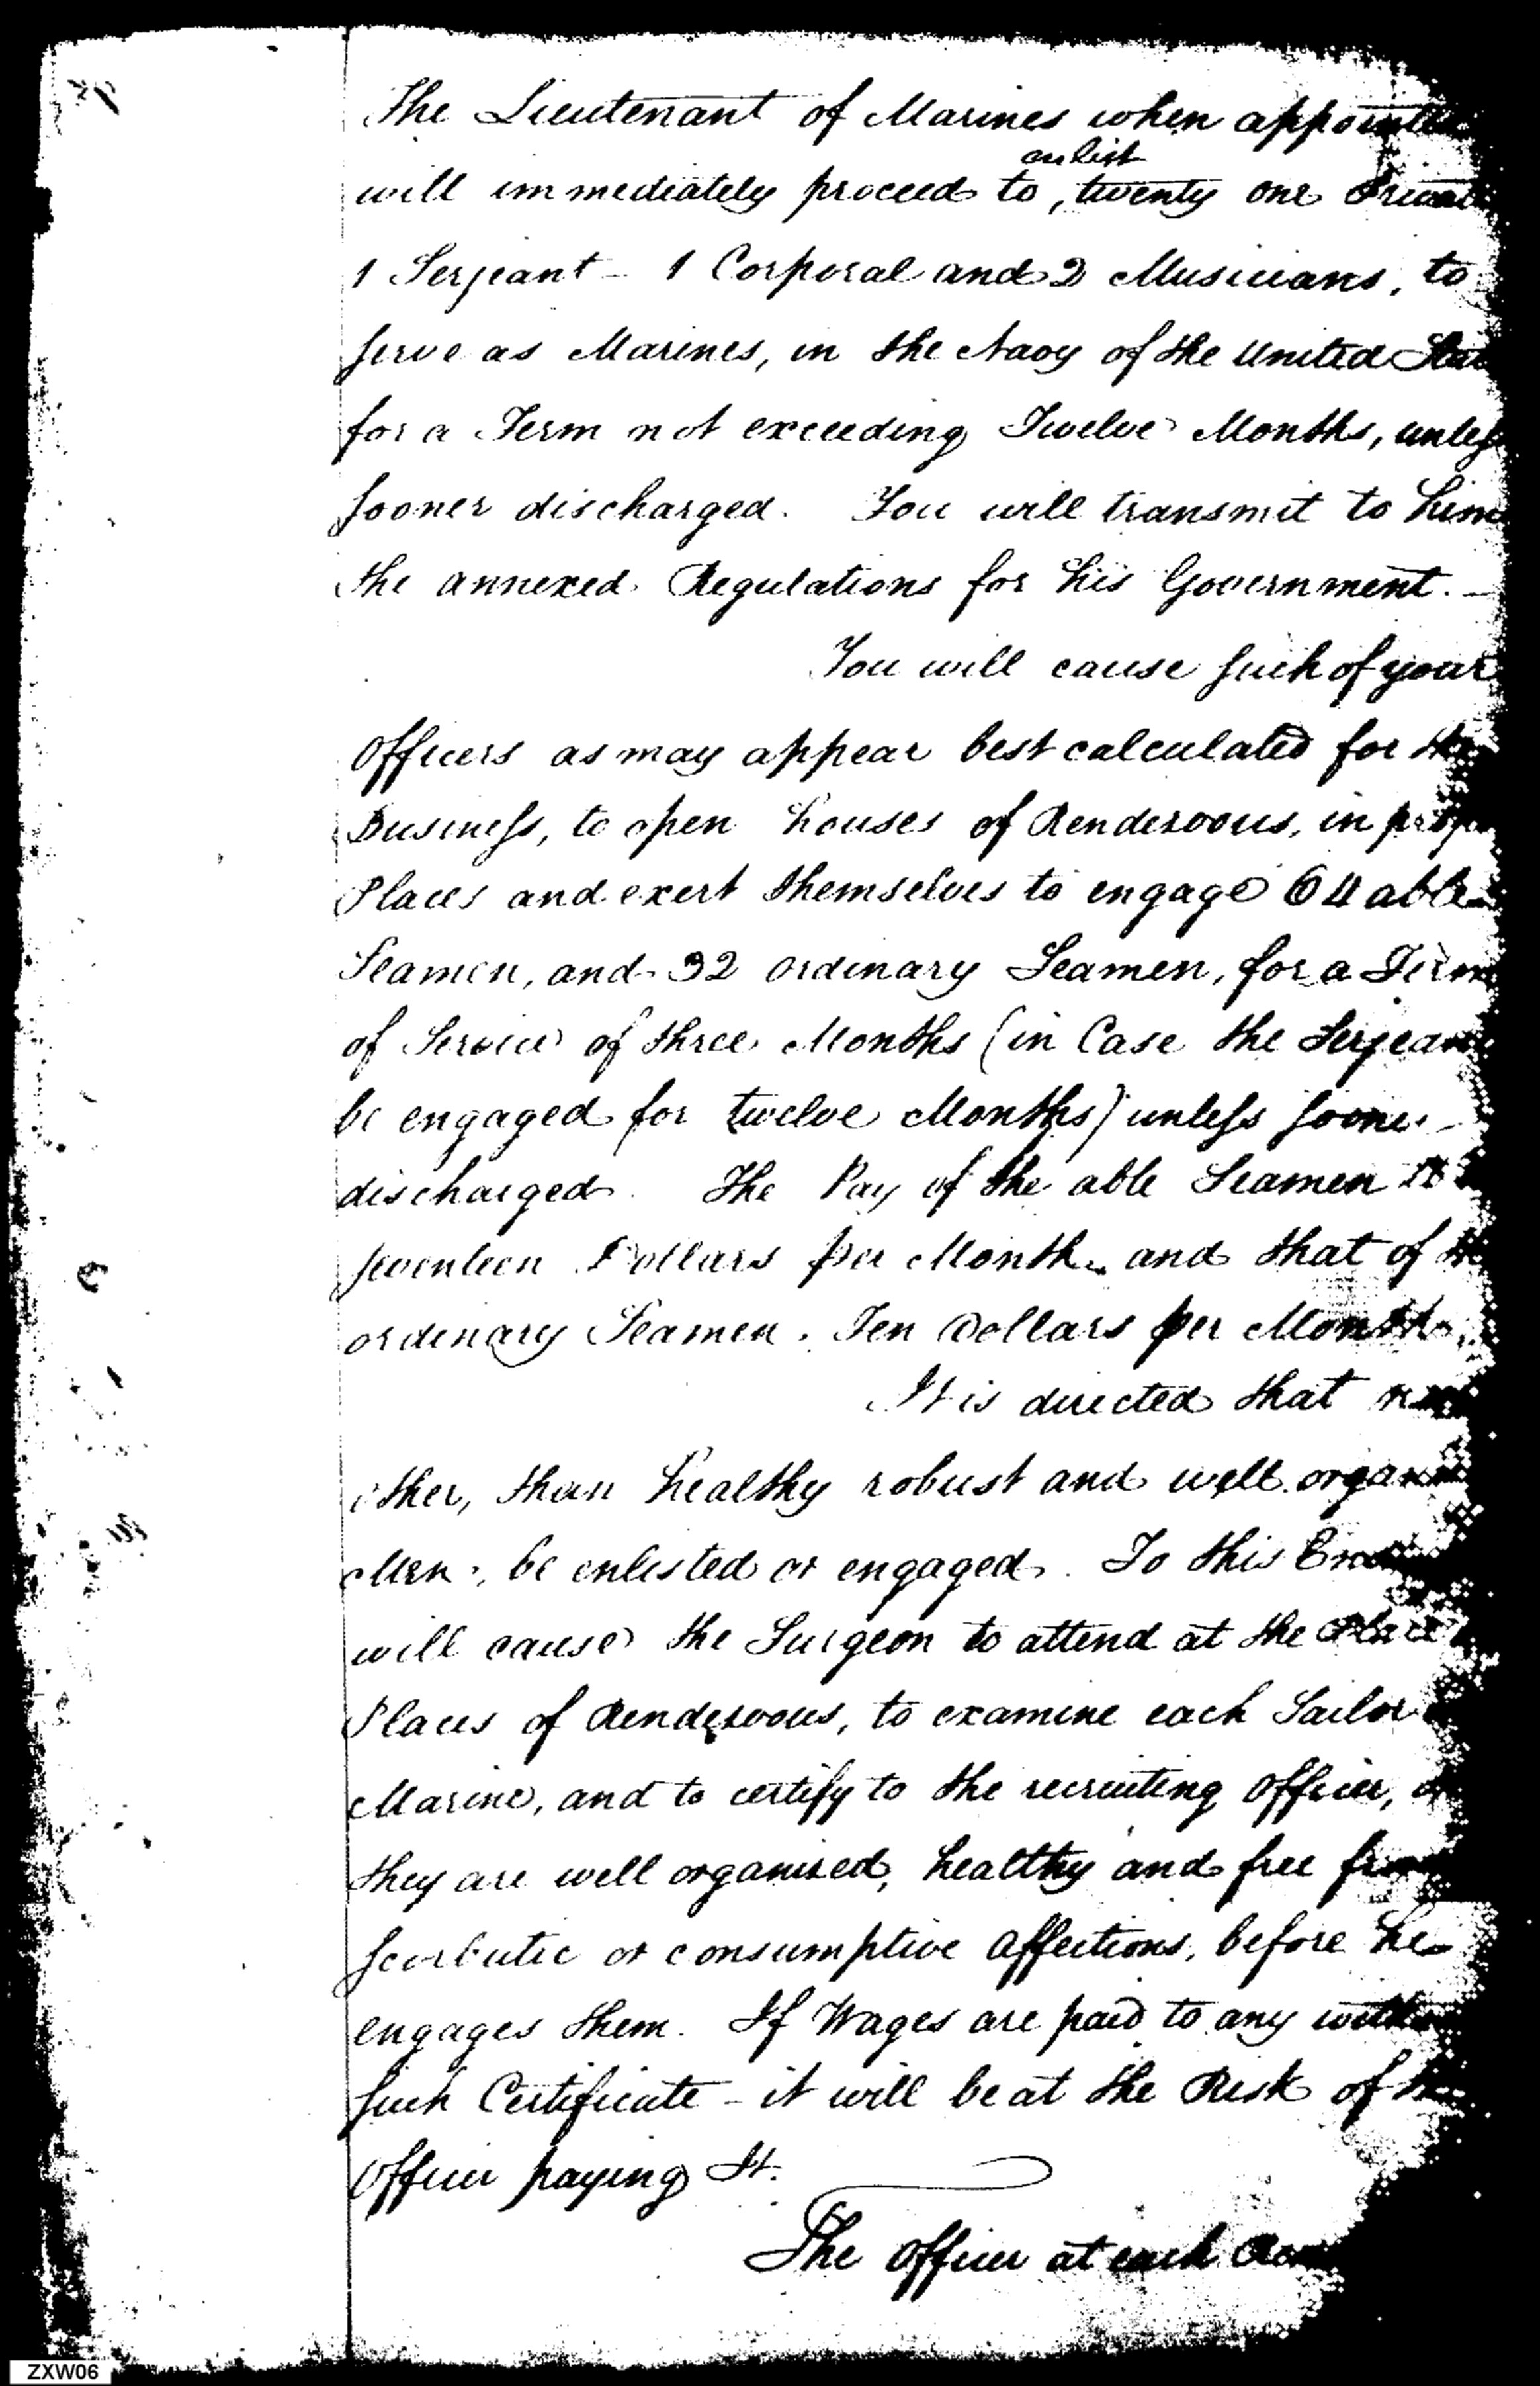 The Lieutenant of Marines when appointed
enlist
will immediately proceed to, twenty one
1 Serjeant - 1 Corporal and 2 Musicians, to
serve as Marines, in the Navy of the United
for a Term not exceeding Twelve Months, unless
sooner discharged. You will transmit to him
the annexed Regulations for his Government. -
You will cause such of your
Officers as may appear best calculated for the
Business, to open houses of Rendezvous, in
Places and exert themselves to engage 64 able
Seamen, and 32 ordinary Seamen, for a Term
of Service of three Months (in Case the
be engaged for twelve Months) unless sooner
discharged. The Pay of the able Seamen
seventeen Dollars per Month, and that of
ordinary Seamen. Ten Dollars per Month
It is directed that
other, than healthy robust and well
Men, be enlisted or engaged. To this
will cause the Surgeon to attend at the Place
Places of Rendezvous, to examine each Sailor
Marine, and to certify to the recruiting Officer,
they are well organised, healthy and free from
scorbutic or consumptive affections, before he
engages them. If Wages are paid to any
such Certificate - it will be at the Risk of
Officer paying It.
The Officer at each
ZXW06